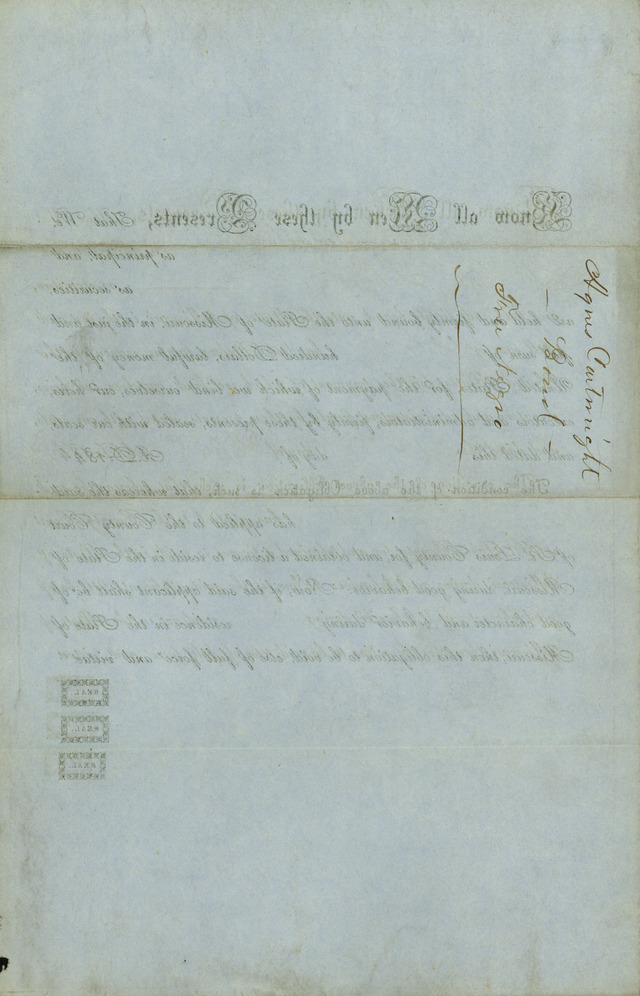 Agnes Cartwright
— Bond —
Free
Know all Men by these Presents, That We
as principal; and
as securities,
are held and firmly bound unto the State of Missouri, in the just and
sum of hundred Dollars, lawful money of the
for the payment of which we bind ourselves, our heirs
and administrators, firmly by these presents, sealed with our seals
and dated this day of A.D. 184
The condition of the above Obligation is such, that whereas the said
has applied to the County Court
of St. Louis County for, and obtained a license to reside in the State of
Missouri, during good behavior: Now, if the said applicant shall be of
good character and behavior during residence in the State of
Missouri, then this obligation to be void, else of full force and virtue.
SEAL.
SEAL.
SEAL.